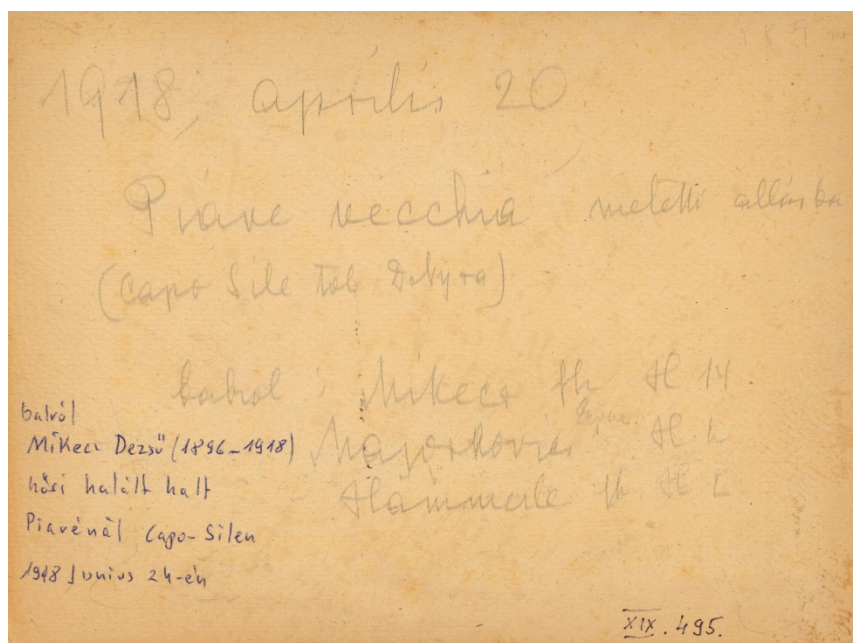 1918, április 20.
Piave vecchia meletti állásba
(Capo Sile től
balról : Mikecz fh H 14
Majorkovics H
Hämmerle fh H
balról
Mikecz Dezső (1896-1918)
hősi halált halt
Piavénál Capo-Silen
1918 Junius 24-én
XIX. 495.